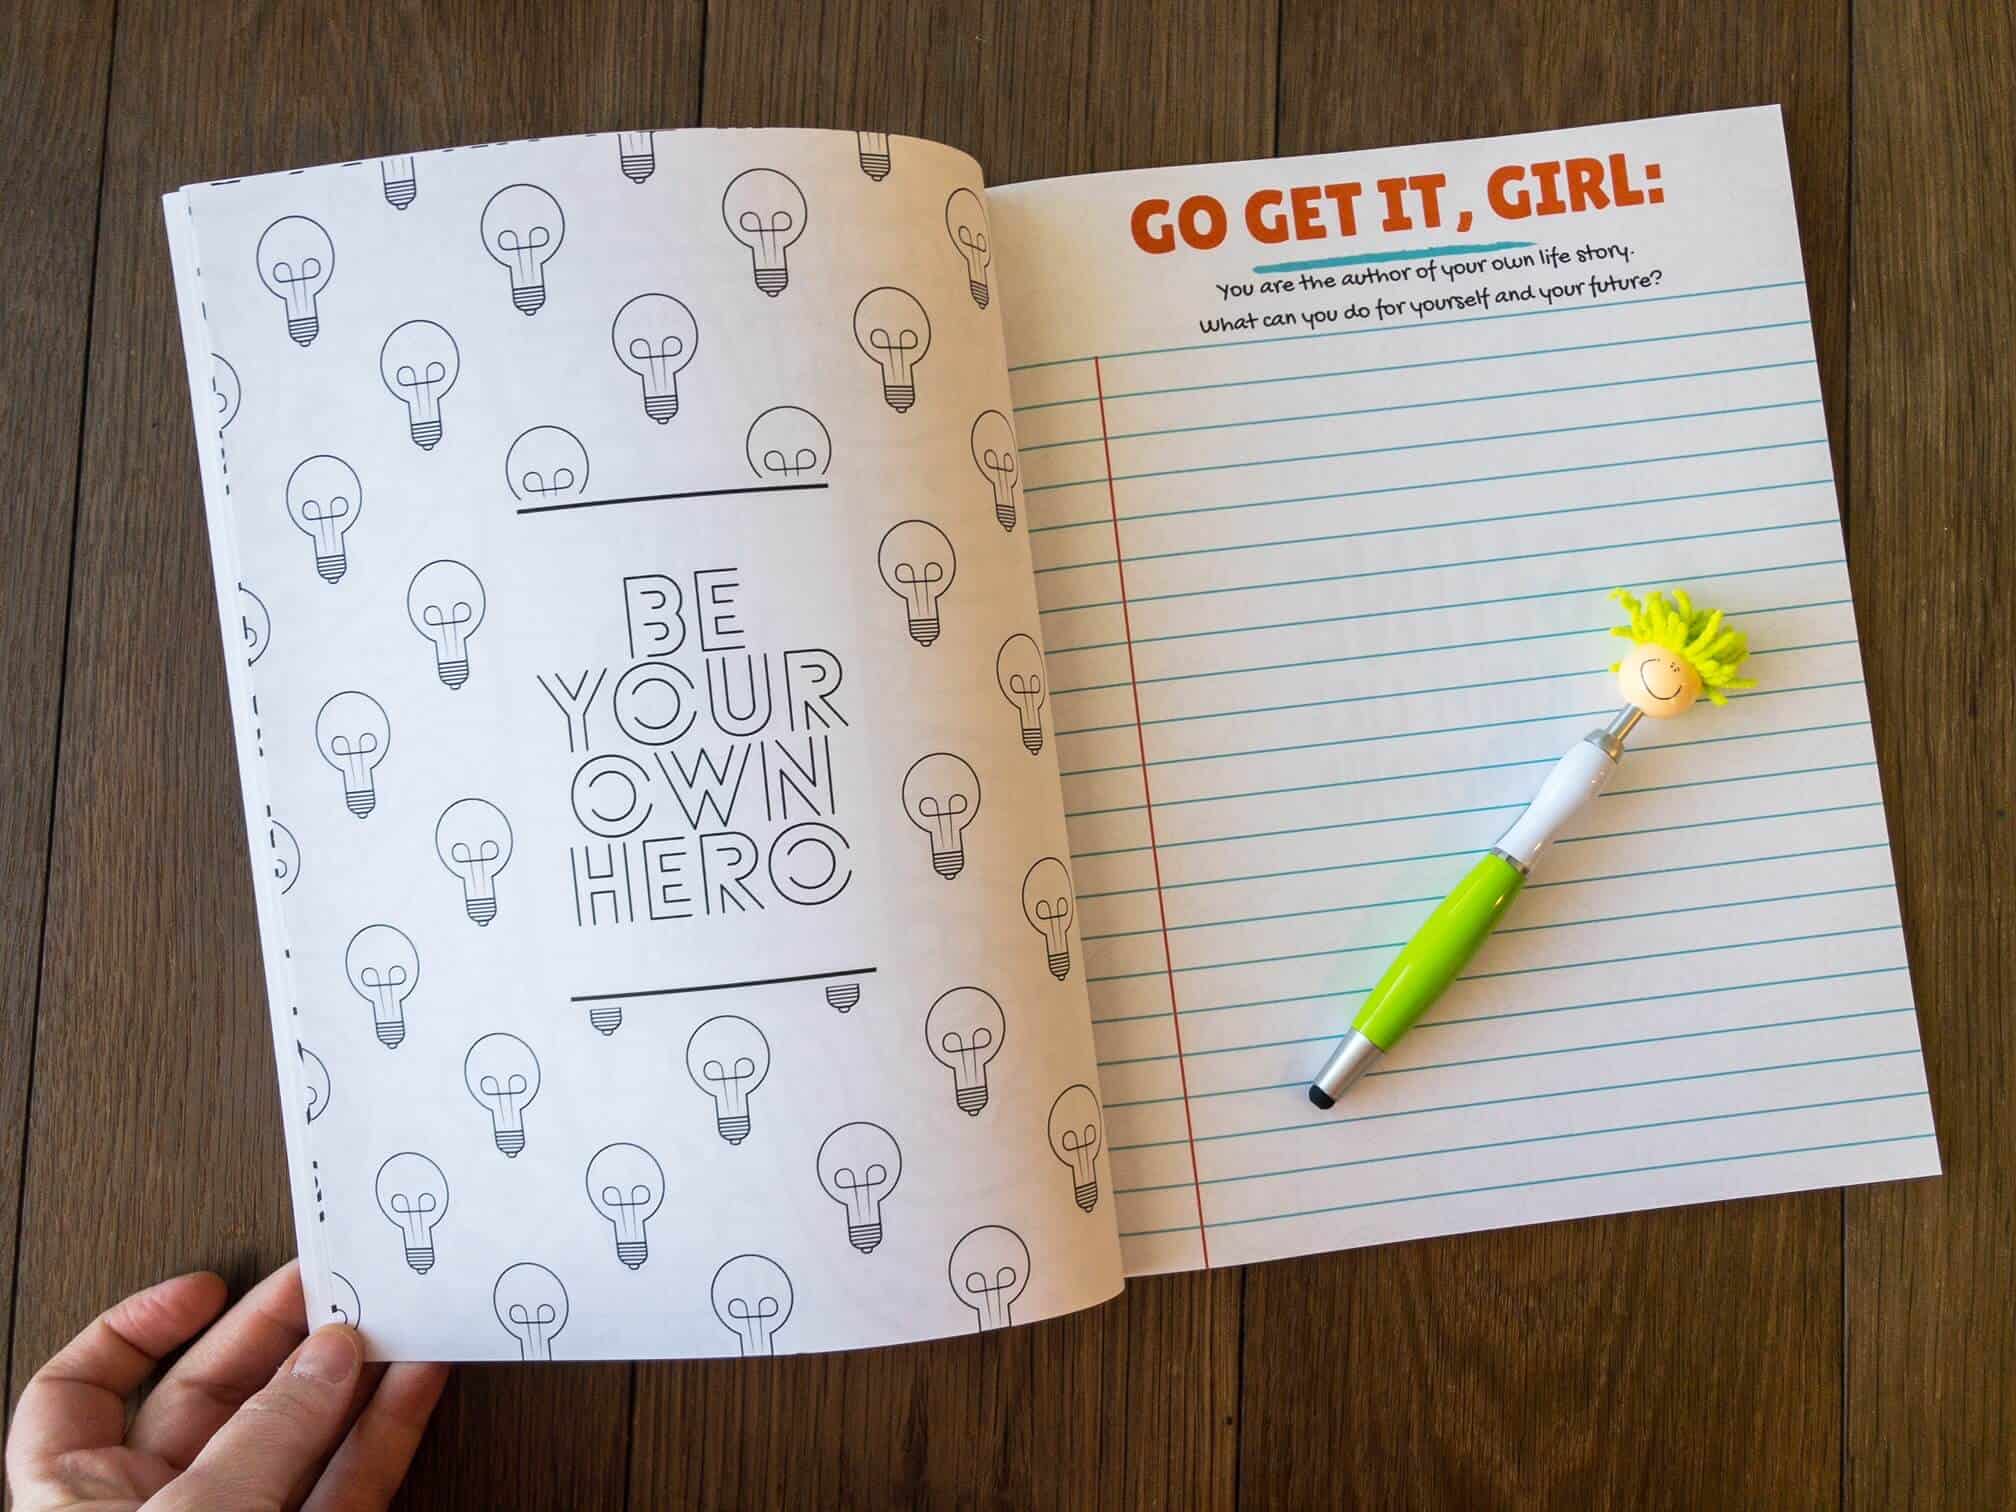 BE
YOUR
OWN
HERO
GO GET IT, GIRL:
You are the author of your own life story.
What can you do for yourself and your future?